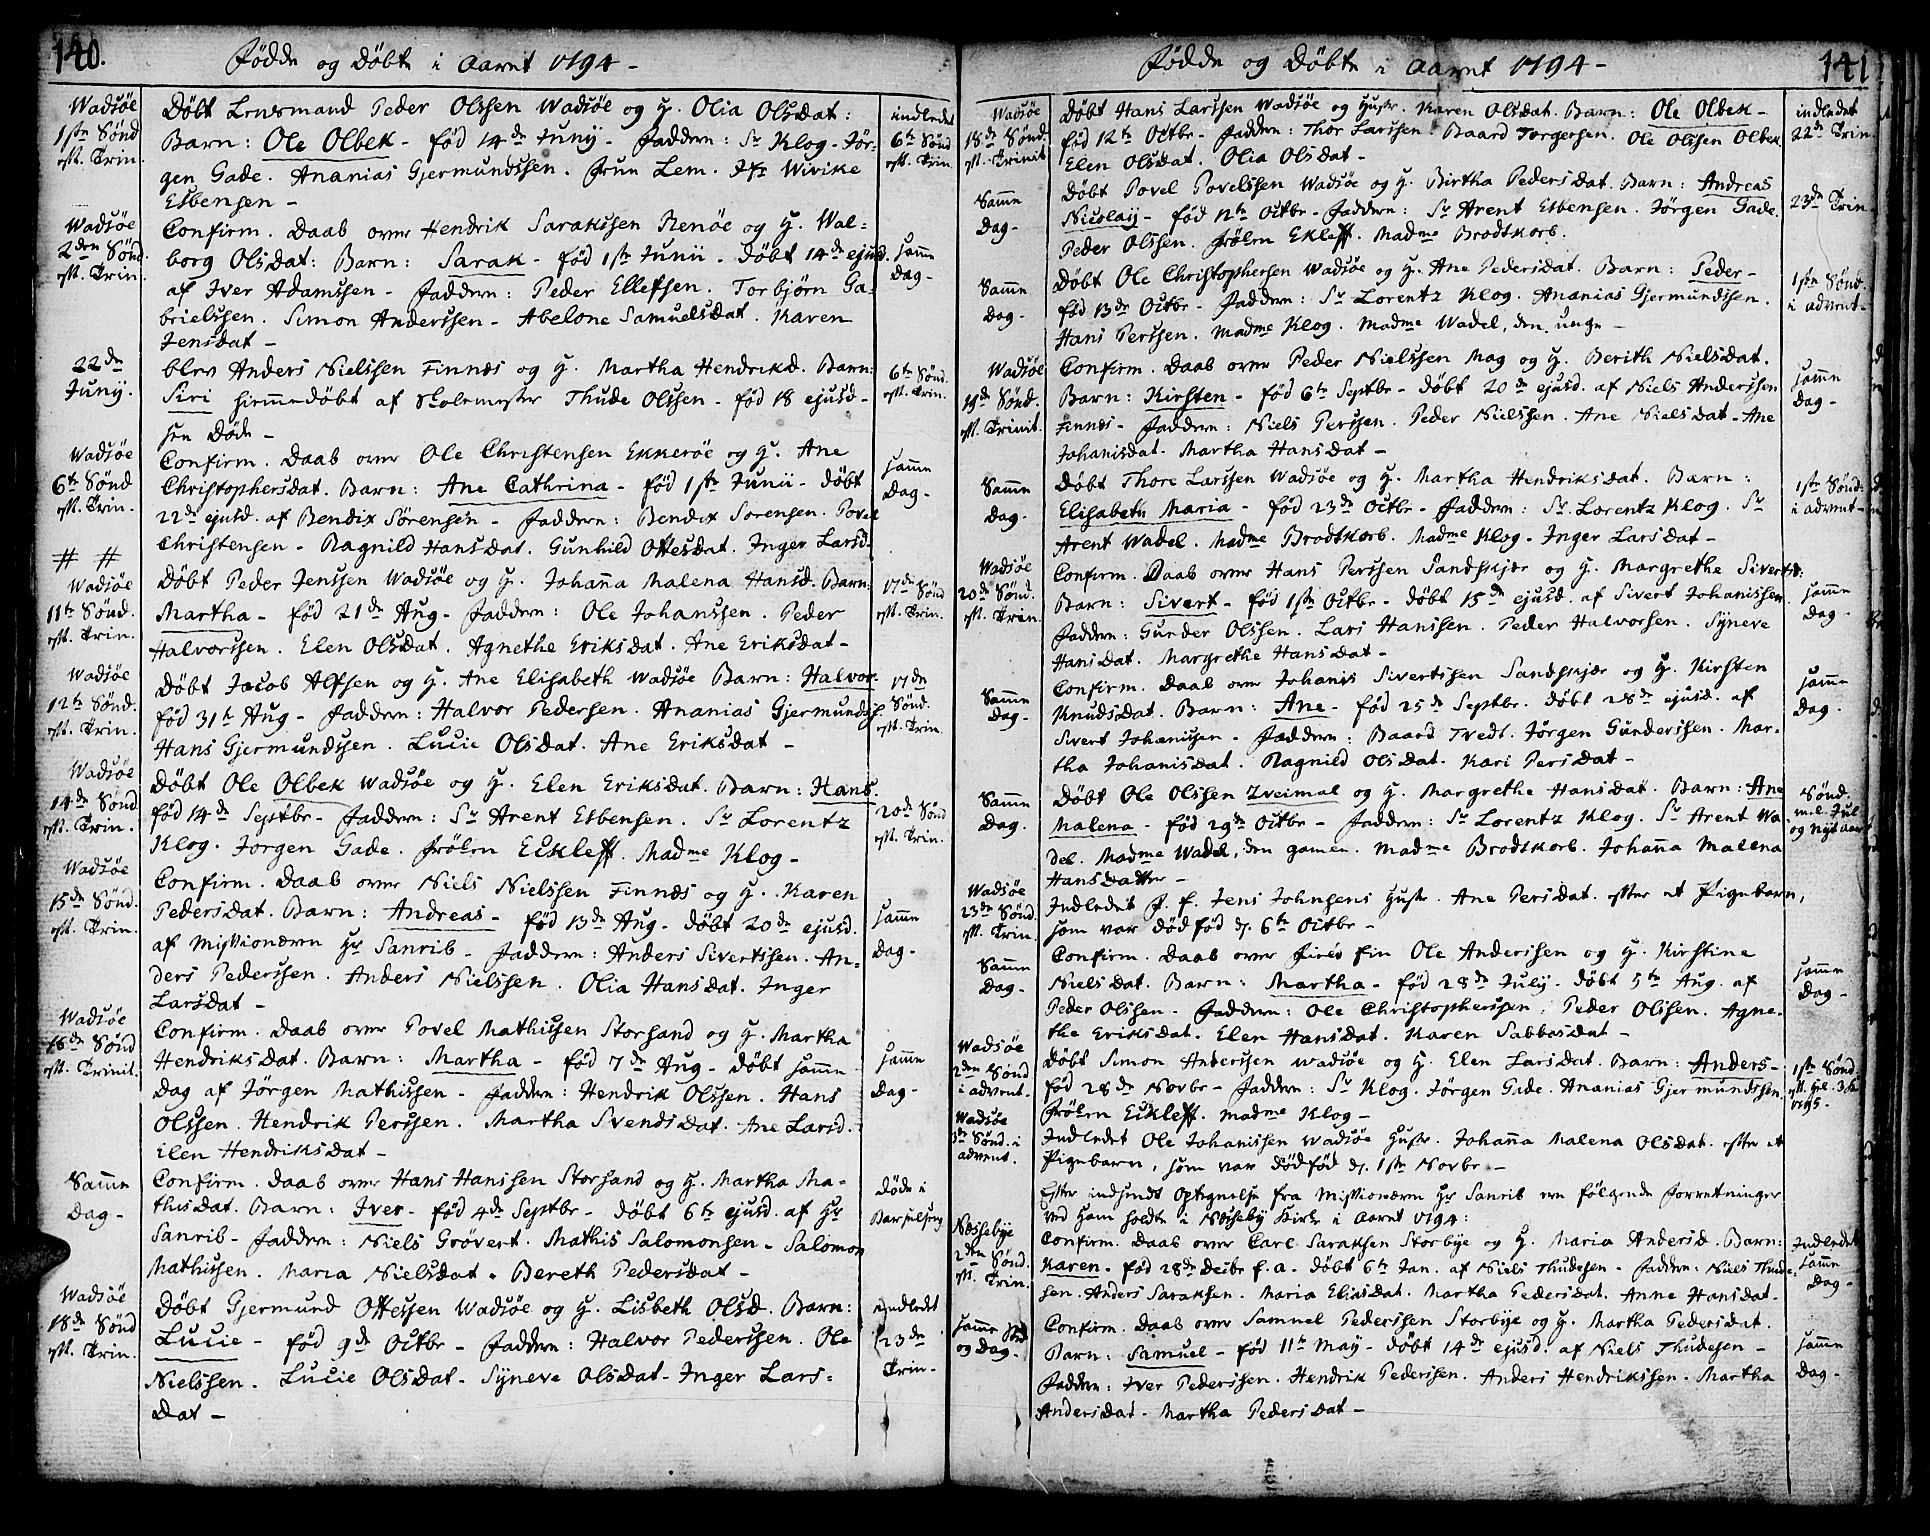 140.
Fødde og Døbte i Aaret 1794 -
Wadsöe
1ste Sönd
eft. Trin.
Döbt Lensmand Peder Olssen Wadsöe og H. Olia Olsdat:
Barn: Ole Olbek - fød 14de Junij - Faddere: Sr Klog. Jör-
gen Gade. Ananias Gjermundssen. Frue Lem. Jfr Wivike
Esbensen -
indledet
6te Sönd
eft. Trin.
Wadsöe
2den Sönd.
eft. Trin.
Confirm. Daab over Hendrik Sarakssen Renöe og H. Wal-
borg Olsdat: Barn: Sarak - fød 1ste Junii - döbt 14de ejusd.
af Iver Adamssen - Faddere: Peder Ellefsen. Torbjörn Ga-
brielssen. Simon Anderssen - Abelone Samuelsdat. Karen
Jensdat -
samme
Dag -
22de
Junij.
blev Anders Nielssen Finnes og H. Martha Hendriksd. Barn:
Siri hiemmedöbt af Skolemester Thude Olssen - fød 18 ejusd -
sen död -
6te Sönd.
eft. Trin.
Wadsöe
6te Sönd
eft. Trin.
Confirm. Daab over Ole Christensen Ekkeröe og H. Ane
Christophersdat. Barn: Ane Cathrina - fød 1ste Junii - döbt
22de ejusd. af Bendix Sörensen - Faddere: Bendix Sorensen. Povel
Christensen - Ragnild Hansdat. Gunhild Ottesdat. Inger Larsd.
samme
Dag -
# #
Wadsöe
11te Sönd.
eft. Trin.
Döbt Peder Jenssen Wadsöe og H. Johanna Malena Hansd. Barn:
Martha - fød 21de Aug - Faddere: Ole Johanssen. Peder
Halvorssen. Elen Olsdat. Agnethe Eriksdat. Ane Eriksdat -
17de Sönd
eft. Trin.
Wadsöe
12te Sönd.
eft. Trin.
Döbt Jacob Alfsen og H. Ane Elisabeth Wadsöe Barn: Halvor.
fød 31te Aug - Faddere: Halvor Pedersen. Ananias Gjermunds.
Hans Gjermundssen. Lucie Olsdat. Ane Eriksdat -
17de
Sönd.
eft. Trin.
Wadsöe
14de Sönd
eft. Trin.
Döbt Ole Olbek Wadsöe og H. Elen Eriksdat. Barn: Hans.
fød 14de Septbr - Faddere: Sr Arent Esbensen. Sr Lorentz
Klog. Jorgen Gade. Frölen Eckleff. Madme Klog -
20de Sönd
eft. Trin.
Wadsöe
15de Sönd.
eft. Trin.
Confirm. Daab over Niels Nielssen Finnes og H. Karen
Pedersdat. Barn: Andreas - fød 13de Aug - döbt 20de ejusd.
af Missionæren Hr Sanrib - Faddere: Anders Sivertssen. An-
ders Pederssen. Anders Nielssen. Olia Hansdat. Inger
Larsdat -
samme
Dag -
Wadsöe
18de Sönd
eft. Trinit.
Confirm. Daab over Povel Mathissen Storsand og H. Martha
Hendriksdat. Barn: Martha - fød 7de Aug - döbt samme
Dag af Jörgen Mathissen - Faddere: Hendrik Olssen. Hans
Olssen. Hendrik Perssen. Martha Svendsdat. Ane Larsd.
Elen Hendriksdat -
samme
Dag -
Samme
Dag -
Confirm. Daab over Hans Hanssen Storsand og H. Martha Ma-
thisdat. Barn: Iver - fød 4de Septbr - döbt 6te ejusd. af Hr
Sanrib - Faddere: Niels Grövert. Mathis Salomonsen - Salomon
Mathissen. Maria Nielsdat. Bereth Pedersdat -
Döde i
Barselseng
Wadsöe
18de Sönd
eft. Trin.
Döbt Gjermund Ottessen Wadsöe og H. Lisbeth Olsd. Barn:
Lucie - fød 9de Octbr - Faddere: Halvor Pederssen. Ole
Nielssen. Lucie Olsdat - Syneve Olsdat - Inger Lars-
dat -
indledet
23de
Trin -
Fødde og Døbte i Aaret 1794 -
141
Wadsöe
18de Sönd.
eft. Trinit.
Döbt Hans Larssen Wadsöe og Hustr. Karen Olsdat. Barn: Ole Olbek -
fød 12te Octbr - Faddere: Thor Larssen. Baard Torgersen. Ole Olssen Olbek
Elen Olsdat. Olia Olsdat -
indledet
22de Trin -
Samme
Dag -
Döbt Povel Povelssen Wadsöe og H. Birtha Pedersdat. Barn: Andreas
Nicolaij - fød 12te Octbr - Faddere: Sr Arent Esbensen. Jörgen Gade.
Peder Olssen. Frölen Ekleff. Madme Brodtkorb.
23de Trin -
Samme
Dag -
Döbt Ole Christophersen Wadsöe og H. Ane Pedersdat. Barn: Peder -
fød 13de Octbr - Faddere: Sr Lorentz Klog. Ananias Gjermundssen.
Hans Perssen. Madme Klog. Madme Wadel, den unge -
1ste Sönd.
i advent -
Wadsöe
19de Sönd.
eft. Trinit.
Confirm. Daab over Peder Nielssen Mag og H. Berith Nielsdat.
Barn: Kirsten - fød 6te Septbr - döbt 20de ejusd. af Niels Anderssen
Finnes - Faddere: Niels Perssen. Peder Nielssen. Ane Nielsdat - Ane
Johanisdat. Martha Hansdat -
samme
Dag -
Samme
Dag -
Döbt Thore Larssen Wadsöe og H. Martha Hendriksdat. Barn:
Elisabeth Maria - fød 23de Octbr - Faddere: Sr. Lorentz Klog. Sr
Arent Wadel. Madme Brodtkorb. Madme Klog - Inger Larsdat -
1ste Sönd.
i advent -
Wadsöe
20de Sönd.
eft. Trin.
Confirm. Daab over Hans Perssen Sandskjær og H. Margrethe Sivertsd:
Barn: Sivert - fød 1ste Octbr - döbt 15de ejusd. af Sivert Johanissen.
Faddere: Gunder Olssen. Lars Hanssen. Peder Halvorsen. Syneve
Hansdat. Margrethe Hansdat -
samme
Dag -
Samme
Dag -
Confirm. Daab over Johanis Sivertssen Sandskjær og H. Kirsten
Knudsdat. Barn: Ane - fød 25de Septbr. döbt 28de ejusd. af
Sivert Johanissen - Faddere: Baard Tvedt. Jörgen Gunderssen. Mar-
tha Johanisdat. Ragnild Olsdat. Kari Persdat -
samme
Dag -
Samme
Dag.
Döbt Ole Olssen Zveimal og H. Margrethe Hansdat. Barn: Ane
Malena - fød 29de Octbr - Faddere: Sr Lorentz Klog. Sr Arent Wa-
del. Madme Wadel, den gamle. Madme Brodtkorb. Johanna Malena
Hansdatter -
Sönd.
mel. Jul
og Nytaar
Wadsöe
23de Sönd.
eft. Trin.
Indledet S. f. Jens Johnsens Hustr. Ane Persdat. efter et Pigebarn,
som var dödfød d. 6te Octbr -
Samme
Dag -
Confirm. Daab over Fieldfin Ole Anderssen og H. Kirstine
Nielsdat. Barn: Martha - fød 28de July - döbt 5te Aug. af
Peder Olssen - Faddere: Ole Christopherssen. Peder Olssen. Agne-
the Eriksdat. Elen Hansdat. Karen Sabbasdat -
samme
Dag -
Wadsöe
2den Sönd
i advent.
Döbt Simon Anderssen Wadsöe og H. Elen Larsdat. Barn: Anders -
fød 28de Novbr - Faddere: Sr Klog. Jörgen Gade. Ananias Gjermundssen.
Frölen Eikleff. Madme Klog -
1ste Sönd.
eft. Hel. 3 K.
1795.
Wadsöe
3de Sönd. i
advent.
Indledet Ole Johanissen Wadsöe Hustr. Johanna Malena Olsdat. efter et
Pigebarn, som var dödfød d. 1ste Novbr -
Efter indsendt Optegnelse fra Missionæren Hr Sanrib ere følgende Forretninger
ved ham holdte i Næsseby Kirke i Aaret 1794:
Næssebye
2den Sönd.
eft. Trin.
Confirm. Daab over Carl Saraksen Storbye og H. Maria Andersd. Barn:
Karen - fød 28de Decbr f. a. - döbt 6te Jan. af Niels Thudesen - Faddere: Niels Thude-
sen. Anders Saraksen. Maria Eliasdat. Martha Pedersdat. Anne Hansdat -
Indledet
samme
Dag -
samme Sted
og Dag -
Confirm. Daab over Samuel Pederssen Storbye og H. Martha Pedersdat.
Barn: Samuel - fød 11te May - döbt 14de ejusd. af Niels Thudesen -
Faddere: Iver Pederssen. Hendrik Pederssen. Anders Hendrikssen. Martha
Andersdat - Martha Pedersdat -
samme
Dag -